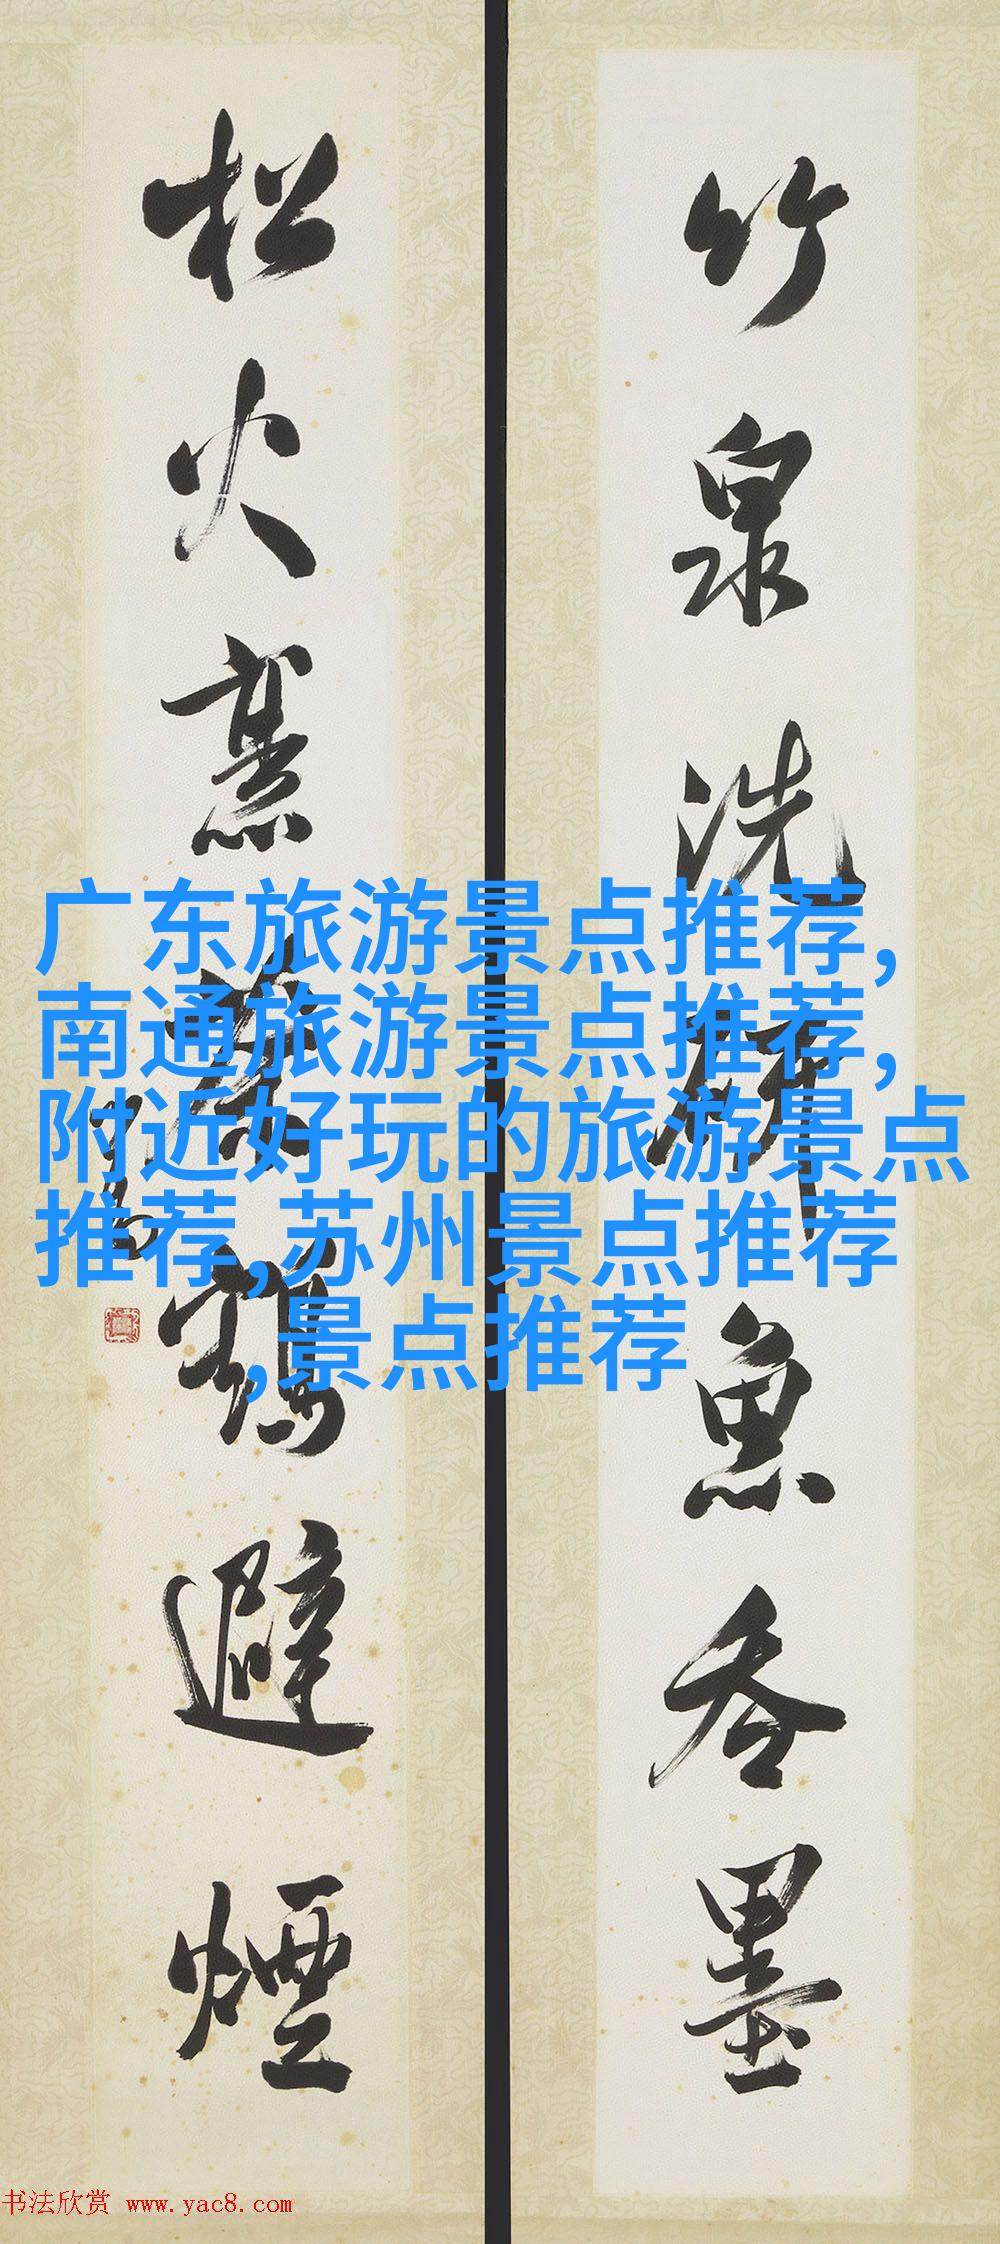 竹泉洗研魚吞墨
松火烹茶鶴避煙
广东旅游景点推荐,
南通旅游景点推荐,
附近好玩的旅游景点
推荐,苏州景点推荐
,景点推荐
书法欣赏 www.yac8.com